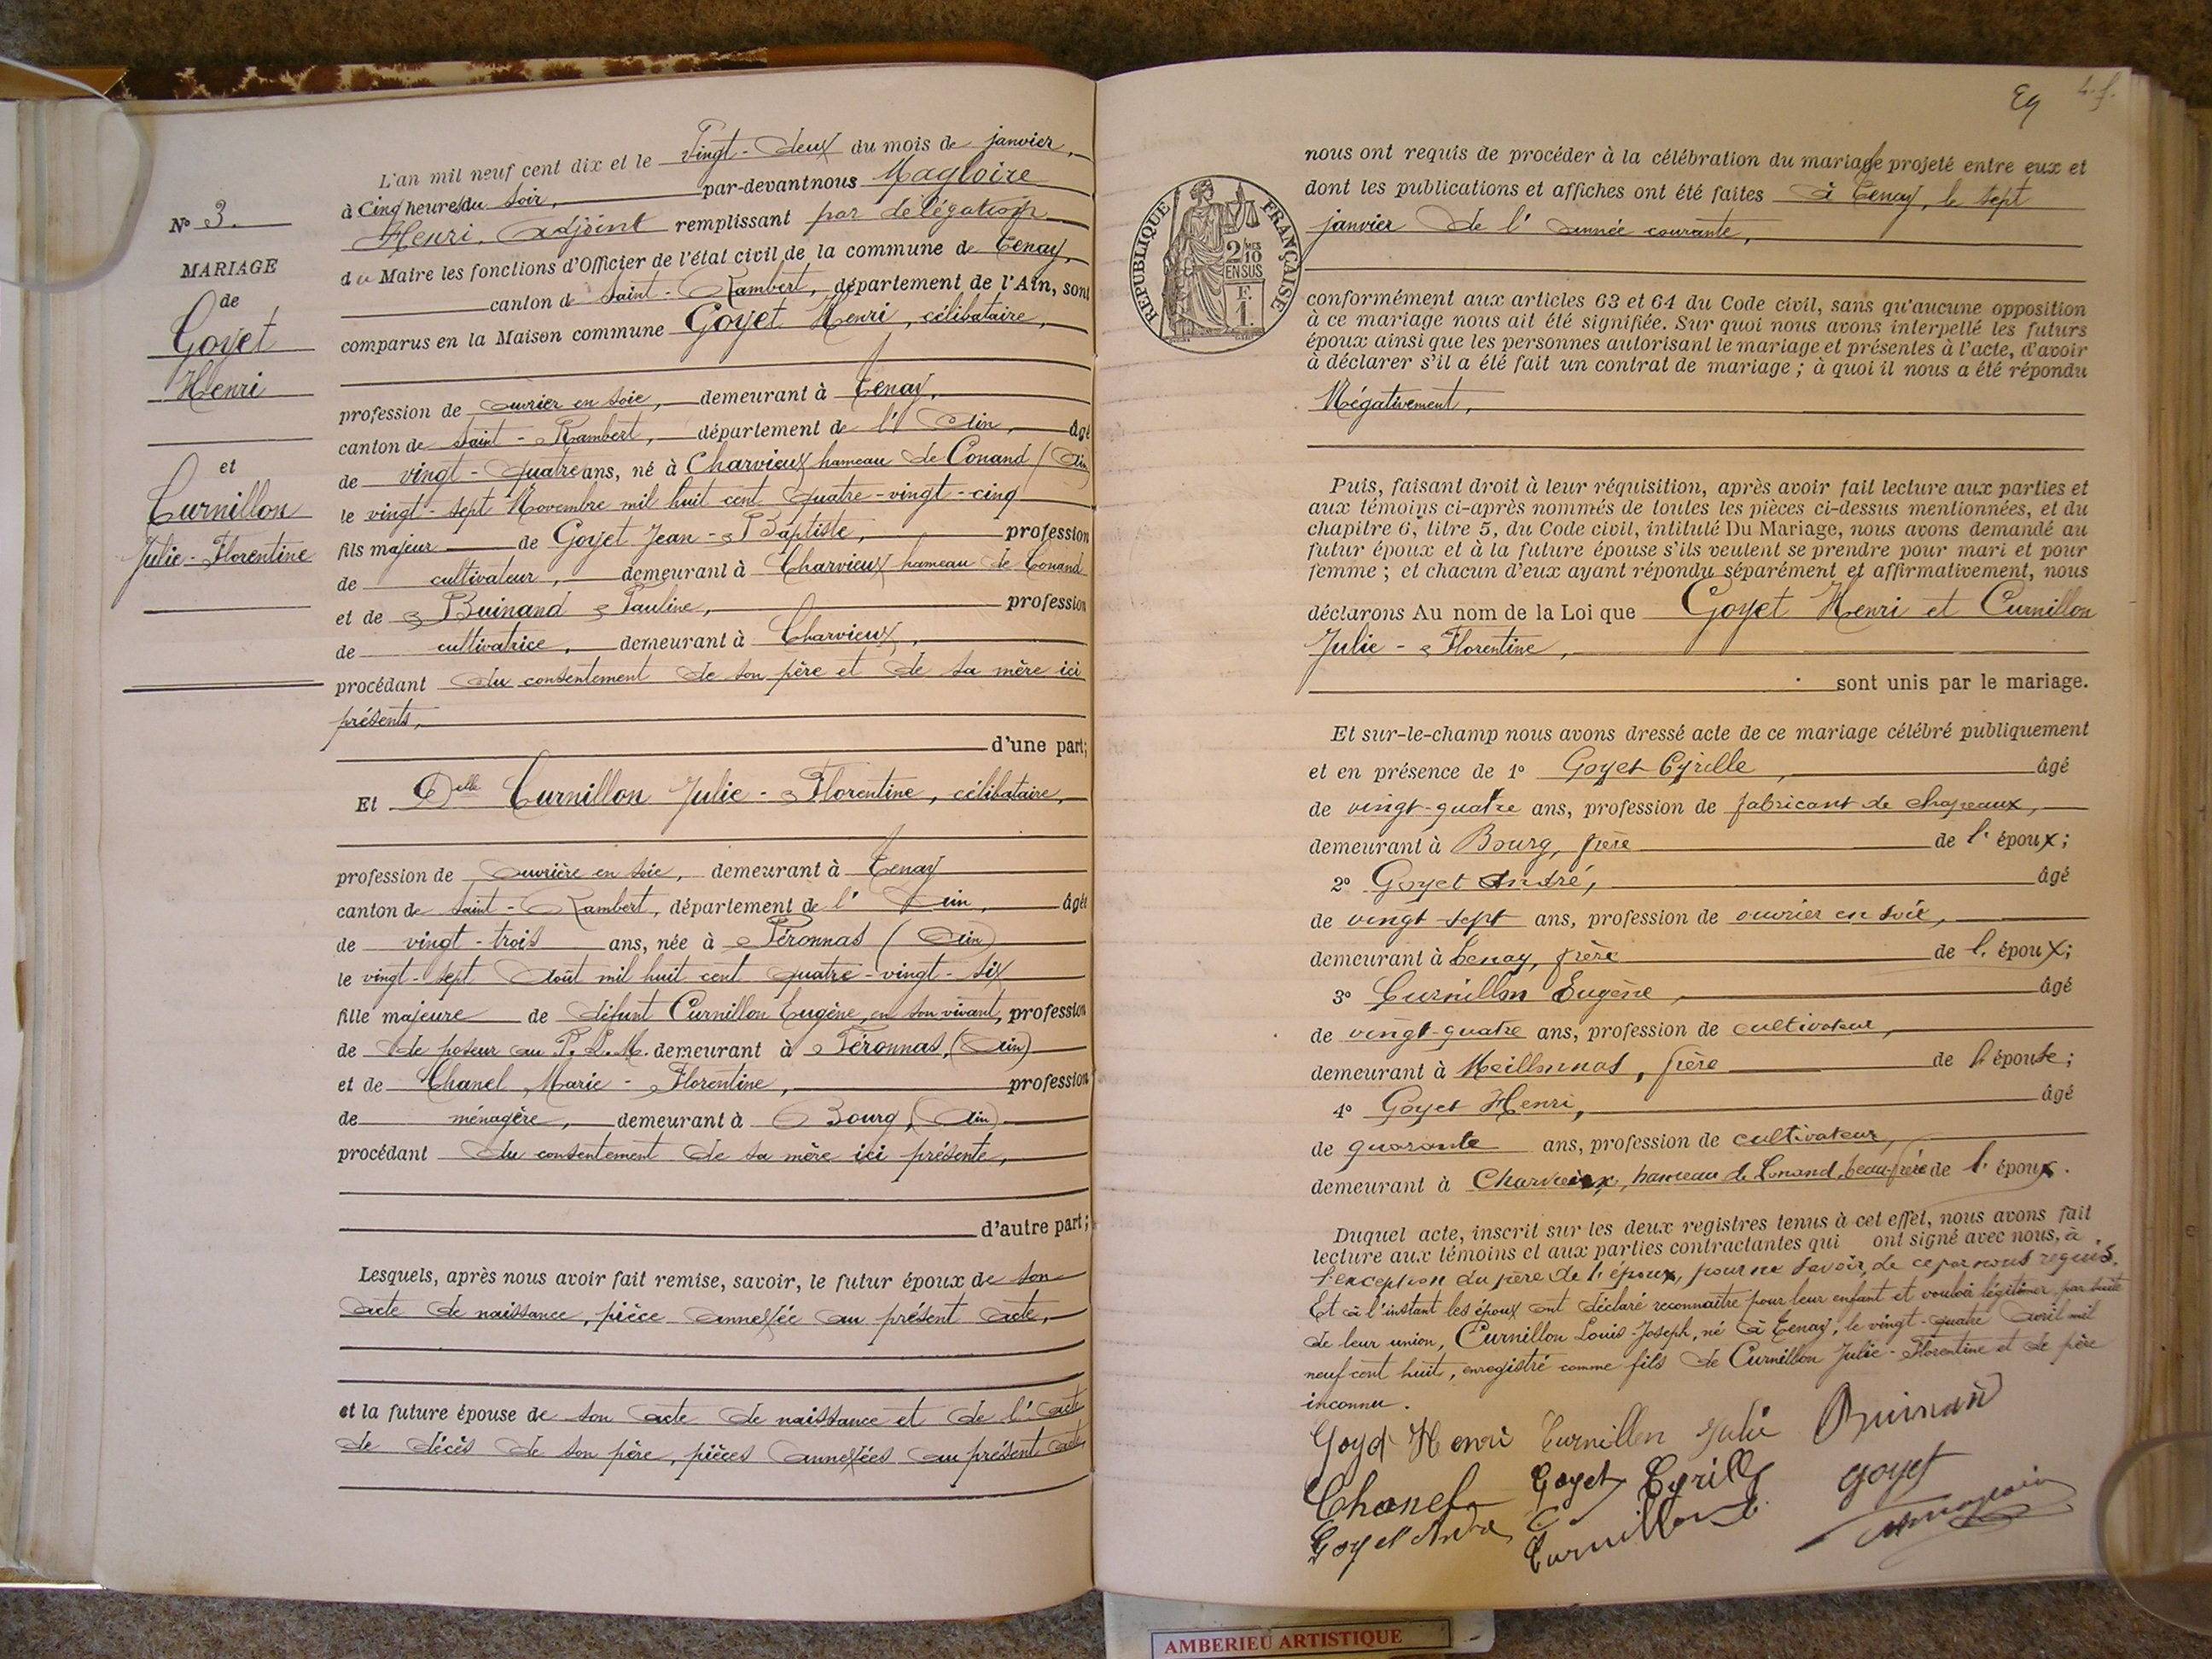 N° 3.
MARIAGE
de
Goyet
Henri
et
Curnillon
Julie - Florentine
L'an mil neuf cent dix et le vingt - deux du mois de janvier,
à Cinq heures du soir, par-devant nous Magloire
Henri, adjoint remplissant par délégation
du Maire les fonctions d'Officier de l'état civil de la commune de Tenay,
canton de Saint - Rambert, département de l'Ain, sont
comparus en la Maison commune Goyet Henri, célibataire,
profession de ouvrier en soie, demeurant à Tenay,
canton de Saint - Rambert, département de l' Ain, âgé
de vingt - quatre ans, né à Charvieux hameau de Conand (Ain)
le vingt - sept Novembre mil huit cent quatre - vingt - cinq
fils majeur de Goyet Jean - Baptiste, profession
de cultivateur, demeurant à Charvieux hameau de Conand
et de Buinand Pauline, profession
de cultivatrice, demeurant à Charvieux,
procédant du consentement de son père et de sa mère ici
présents,
d'une part;
Et Delle Curnillon Julie - Florentine, célibataire,
profession de ouvrière en soie, demeurant à Tenay
canton de Saint - Rambert, département de l' Ain, âgée
de vingt - trois ans, née à Péronnas (Ain)
le vingt - sept Août mil huit cent quatre - vingt - six
fille majeure de défunt Curnillon Eugène, en son vivant, profession
de de poseur au P. L. M. demeurant à Péronnas, (Ain)
et de Chanel Marie - Florentine, profession
de ménagère, demeurant à Bourg, (Ain)
procédant du consentement de sa mère ici présente,
d'autre part;
Lesquels, après nous avoir fait remise, savoir, le futur époux de son
acte de naissance, pièce annexée au présent acte,
et la future épouse de son acte de naissance et de l' acte
de décès de son père, pièces annexées au présent acte
RÉPUBLIQUE FRANÇAISE
2/10
EN SUS
F.
1.
nous ont requis de procéder à la célébration du mariage projeté entre eux et
dont les publications et affiches ont été faites à Tenay, le sept
janvier de l' année courante,
conformément aux articles 63 et 64 du Code civil, sans qu'aucune opposition
à ce mariage nous ait été signifiée. Sur quoi nous avons interpellé les futurs
époux ainsi que les personnes autorisant le mariage et présentes à l'acte, d'avoir
à déclarer s'il a été fait un contrat de mariage ; à quoi il nous a été répondu
Négativement,
Puis, faisant droit à leur réquisition, après avoir fait lecture aux parties et
aux témoins ci-après nommés de toutes les pièces ci-dessus mentionnées, et du
chapitre 6, titre 5, du Code civil, intitulé Du Mariage, nous avons demandé au
futur époux et à la future épouse s'ils veulent se prendre pour mari et pour
femme ; et chacun d'eux ayant répondu séparément et affirmativement, nous
déclarons Au nom de la Loi que Goyet Henri et Curnillon
Julie - Florentine,
sont unis par le mariage.
Et sur-le-champ nous avons dressé acte de ce mariage célébré publiquement
et en présence de 1° Goyet Cyrille, âgé
de vingt-quatre ans, profession de fabricant de chapeaux,
demeurant à Bourg, frère de l' époux;
2° Goyet André, âgé
de vingt-sept ans, profession de ouvrier en soie,
demeurant à Tenay, frère de l. époux;
3° Curnillon Eugène, âgé
de vingt-quatre ans, profession de cultivateur,
demeurant à Meillonnas, frère de l' épouse;
4° Goyet Henri, âgé
de quarante ans, profession de cultivateur,
demeurant à Charvieux, hameau de Conand, beau-frère de l. époux.
Duquel acte, inscrit sur les deux registres tenus à cet effet, nous avons fait
lecture aux témoins et aux parties contractantes qui ont signé avec nous, à
l'exception du père de l'époux, pour ne savoir, de ce par nous requis.
Et à l'instant les époux ont déclaré reconnaître pour leur enfant et vouloir légitimer par suite
de leur union, Curnillon Louis-Joseph, né à Tenay, le vingt-quatre avril mil
neuf cent huit, enregistré comme fils de Curnillon Julie - Florentine et de père
inconnu.
Goyet Henri Curnillon Julie Buinand
Chanel Goyet Cyrille Goyet
Goyet André Curnillon
AMBERIEU ARTISTIQUE